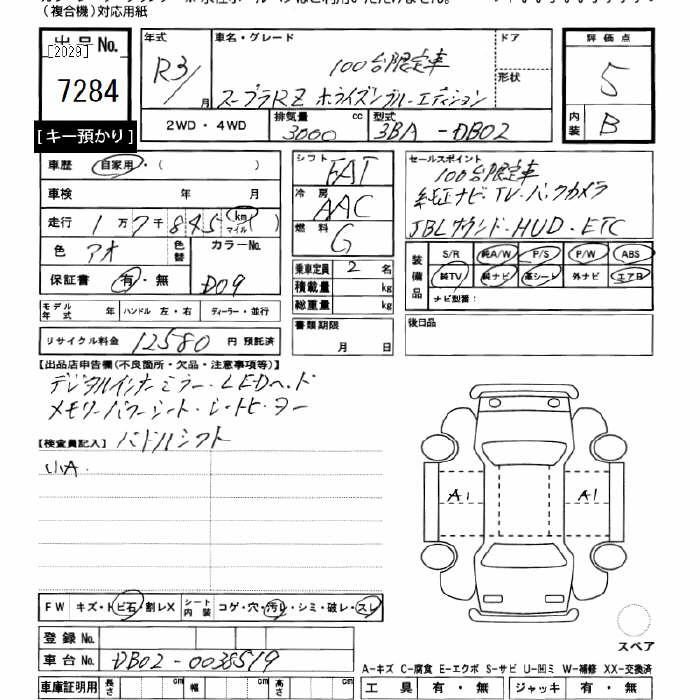 (複合機)対応用紙
出品No.
[2029]
7284
[キー預かり]
年式 R3/ 月
車名・グレード 100台限定車
スープラRZ ホライズンブルーエディション
ドア
形状
評価点 5
内装 B
2WD・4WD
排気量 3000 cc
型式 3BA-DB02
車歴 自家用・( )
車検 年 月
走行 1万7千845 km マイル
色 アオ 色替 カラーNo. D09
保証書 有・無
モデル年式 年 ハンドル 左・右 ディーラー・並行
リサイクル料金 12580 円 預託済
シフト FAT
冷房 AAC
燃料 G
乗車定員 2 名
積載量 kg
総重量 kg
書類期限
月 日
セールスポイント 100台限定車
純正ナビ・TV・バックカメラ
JBLサウンド・HUD・ETC
装備品 S/R 純A/W P/S P/W ABS
純TV 純ナビ 革シート 外ナビ エアB
ナビ型番:
後日品
【出品店申告欄(不良箇所・欠品・注意事項等)】
デジタルインナーミラー・LEDヘッド
メモリーパワーシート・シートヒーター
【検査員記入】 パドルシフト
小A.
A1 A1
FW キズ・トビ石・割レX シート内装 コゲ・穴・汚レ・シミ・破レ・スレ
登録No.
車台No. DB02-0038519
スペア
A-キズ C-腐食 E-エクボ S-サビ U-凹ミ W-補修 XX-交換済
車庫証明用 長さ cm 幅 cm 高さ cm
工具 有・無 ジャッキ 有・無